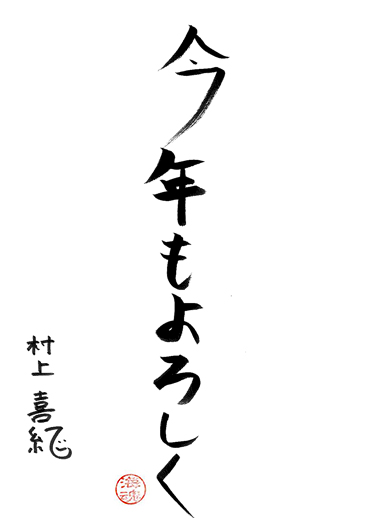 今年もよろしく
村上喜紀